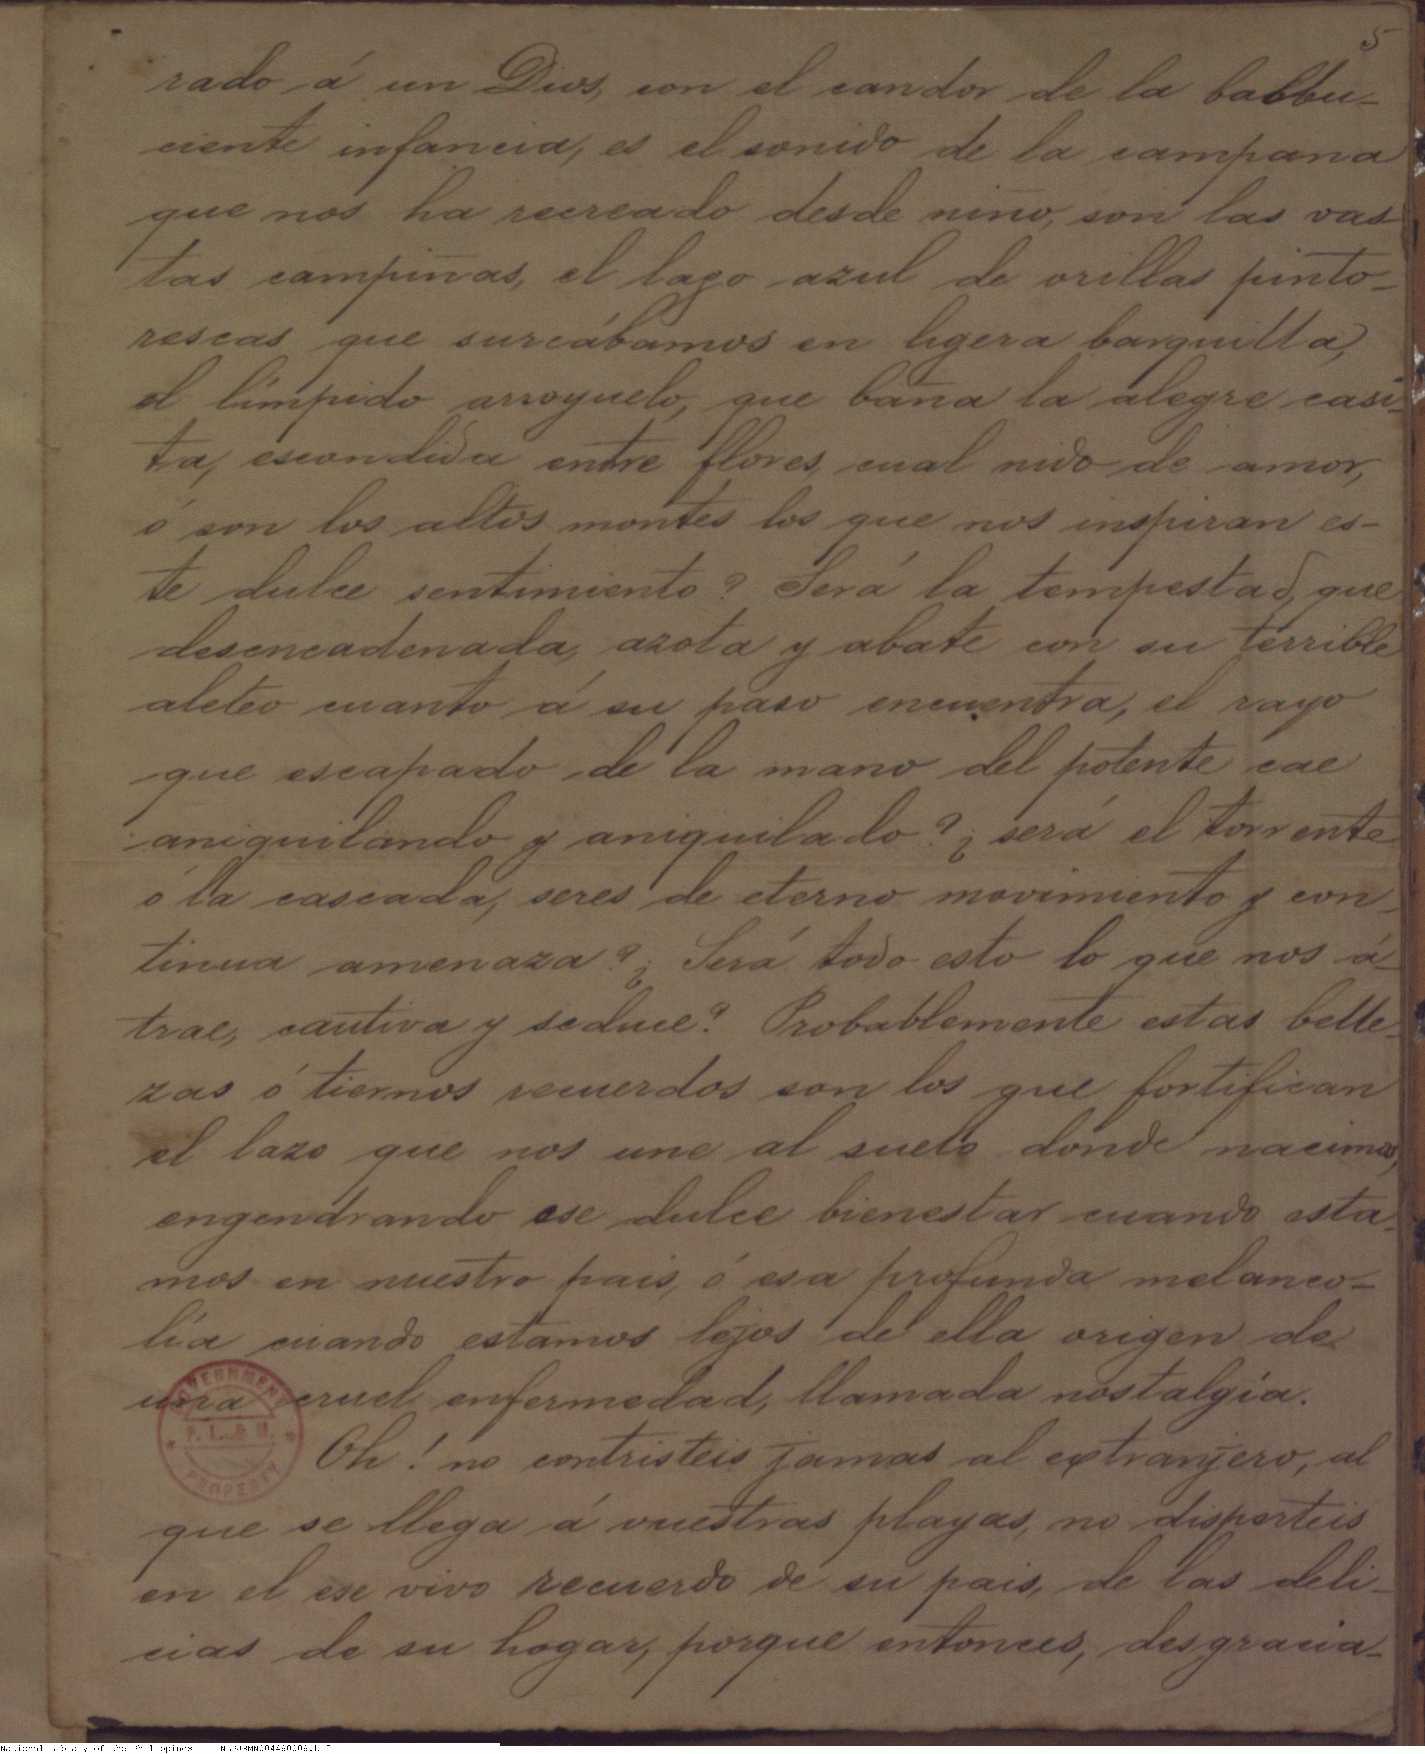 5
rado á un Dios, con el candor de la balbu-
ciente infancia, es el sonido de la campana
que nos ha recreado desde niño, son las vas-
tas campiñas, el lago azul de orillas pinto-
rescas que surcábamos en ligera barquilla,
el límpido arroyuelo, que baña la alegre casi-
ta, escondida entre flores, cual nido de amor,
ó son los altos montes los que nos inspiran es-
te dulce sentimiento? Será la tempestad, que
desencadenada, azota y abate con su terrible
aleteo cuanto á su paso encuentra, el rayo
que escapado de la mano del potente cae
aniquilando y aniquilado? ¿será el torrente
ó la cascada, seres de eterno movimiento y con-
tinua amenaza? ¿Será todo esto lo que nos á-
trae, cautiva y seduce? Probablemente estas belle-
zas ó tiernos recuerdos son los que fortifican
el lazo que nos une al suelo donde nacimos,
engendrando ese dulce bienestar cuando esta-
mos en nuestro pais, ó esa profunda melanco-
lía cuando estamos lejos de ella origen de
una cruel enfermedad, llamada nostalgía.
Oh! no contristeis jamas al extranjero, al
que se llega á vuestras playas, no disperteis
en el ese vivo recuerdo de su pais, de las deli-
cias de su hogar, porque entonces, desgracia-
GOVERNMENT
PROPERTY
National Library of the Philippines